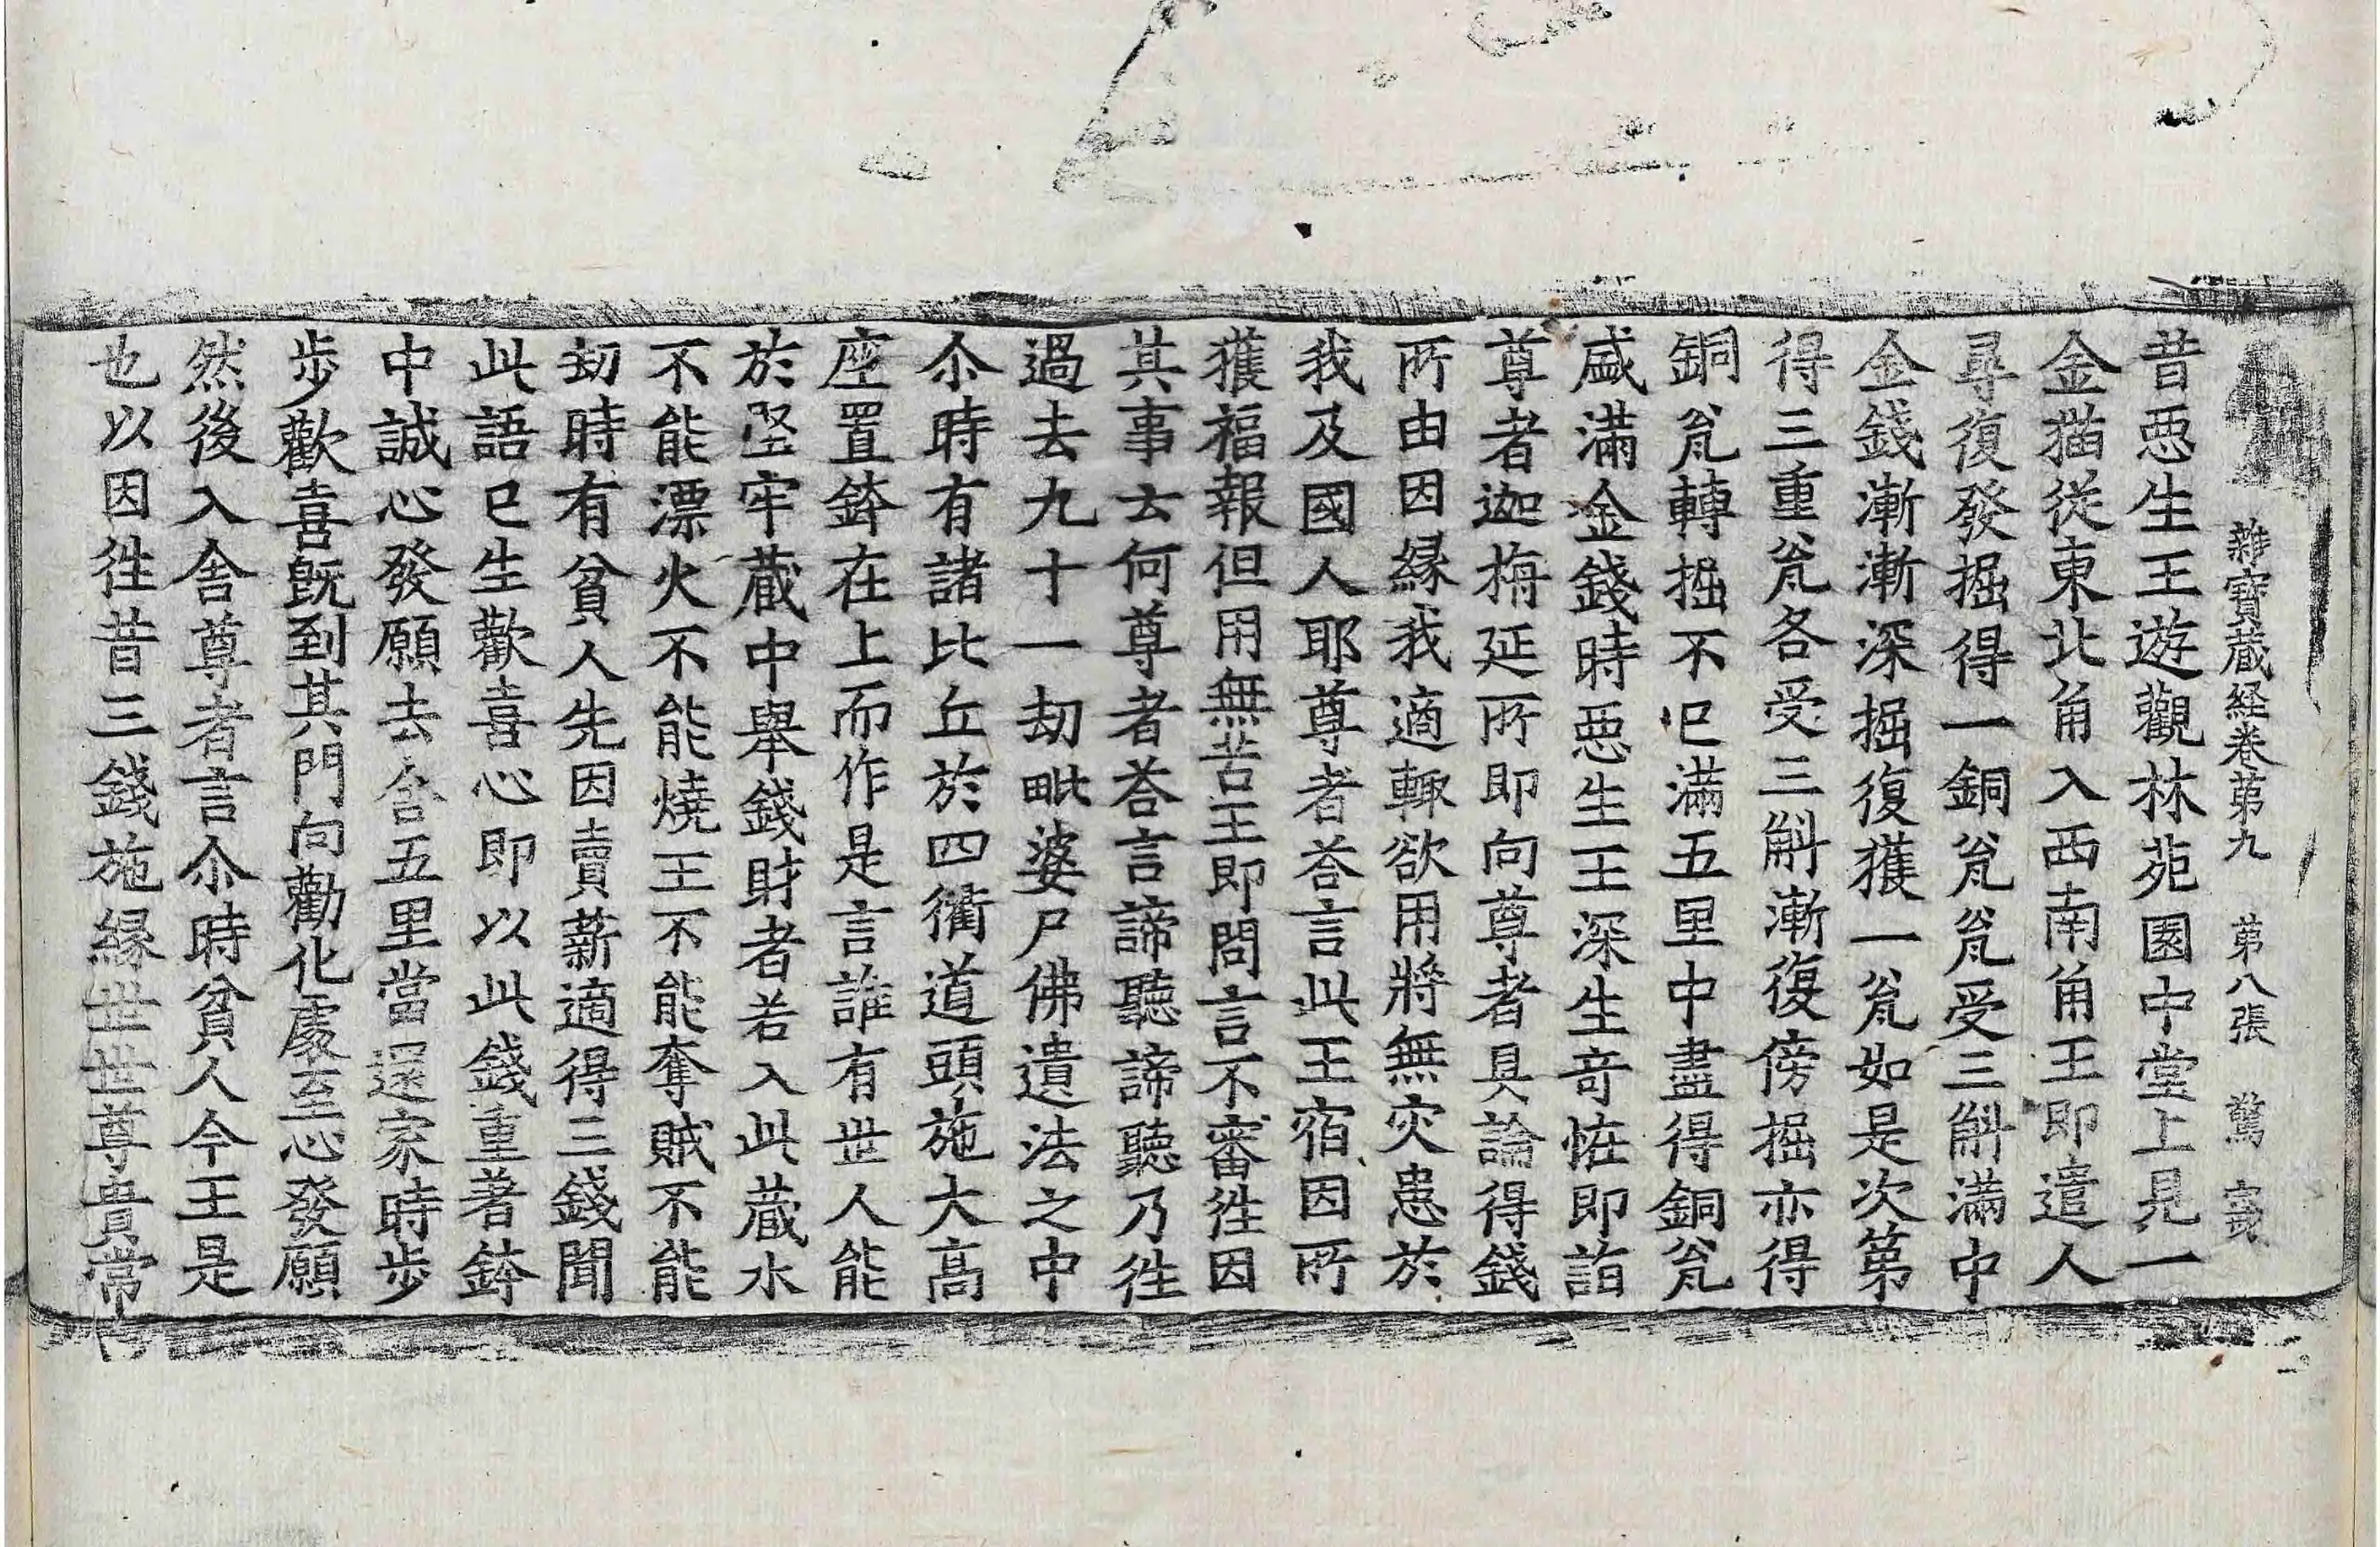 雜寶蔵経卷苐九　苐八張　驚
昔惡生王遊觀林苑園中堂上見一
金猫從東北角入西南角王即遣人
尋復發掘得一銅瓫瓫受三斛滿中
金錢漸漸深掘復獲一瓫如是次第
得三重瓫各受三斛漸復傍掘亦得
銅瓫轉掘不已滿五里中盡得銅瓫
盛滿金錢時惡生王深生竒恠即詣
尊者迦栴延所即向尊者具論得錢
所由因緣我適輙欲用將無灾患於
我及國人耶尊者荅言此王宿因所
獲福報但用無苦王即問言不審徃因
其事云何尊者荅言諦聽諦聽乃徃
過去九十一劫毗婆尸佛遺法之中
尒時有諸比丘於四衢道頭施大高
座置鉢在上而作是言誰有世人能
於堅牢蔵中舉錢財者若入此蔵水
不能漂火不能燒王不能奪賊不能
劫時有貧人先因賣薪適得三錢聞
此語已生歡喜心即以此錢重著鉢
中誠心發願去舍五里當還家時步
步歡喜旣到其門向勸化處至心發願
然後入舍尊者言尒時貧人今王是
也以因徃昔三錢施緣世世尊貴常